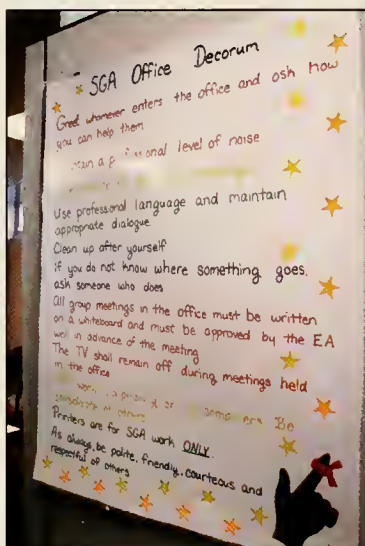 SGA Office Decorum
Greet whomever enters the office and ask how
you can help them
level of noise
Use professional language and maintain
appropriate dialogue
Clean up after yourself
if you do not know where something goes,
ask someone who does
All group meetings in the office must be written
on a whiteboard and must be approved by the EA
well in advance of the meeting
The TV shall remain off during meetings held
in the office
Be
Printers are for SGA work ONLY.
As always, be polite, friendly, courteous and
respectful of others